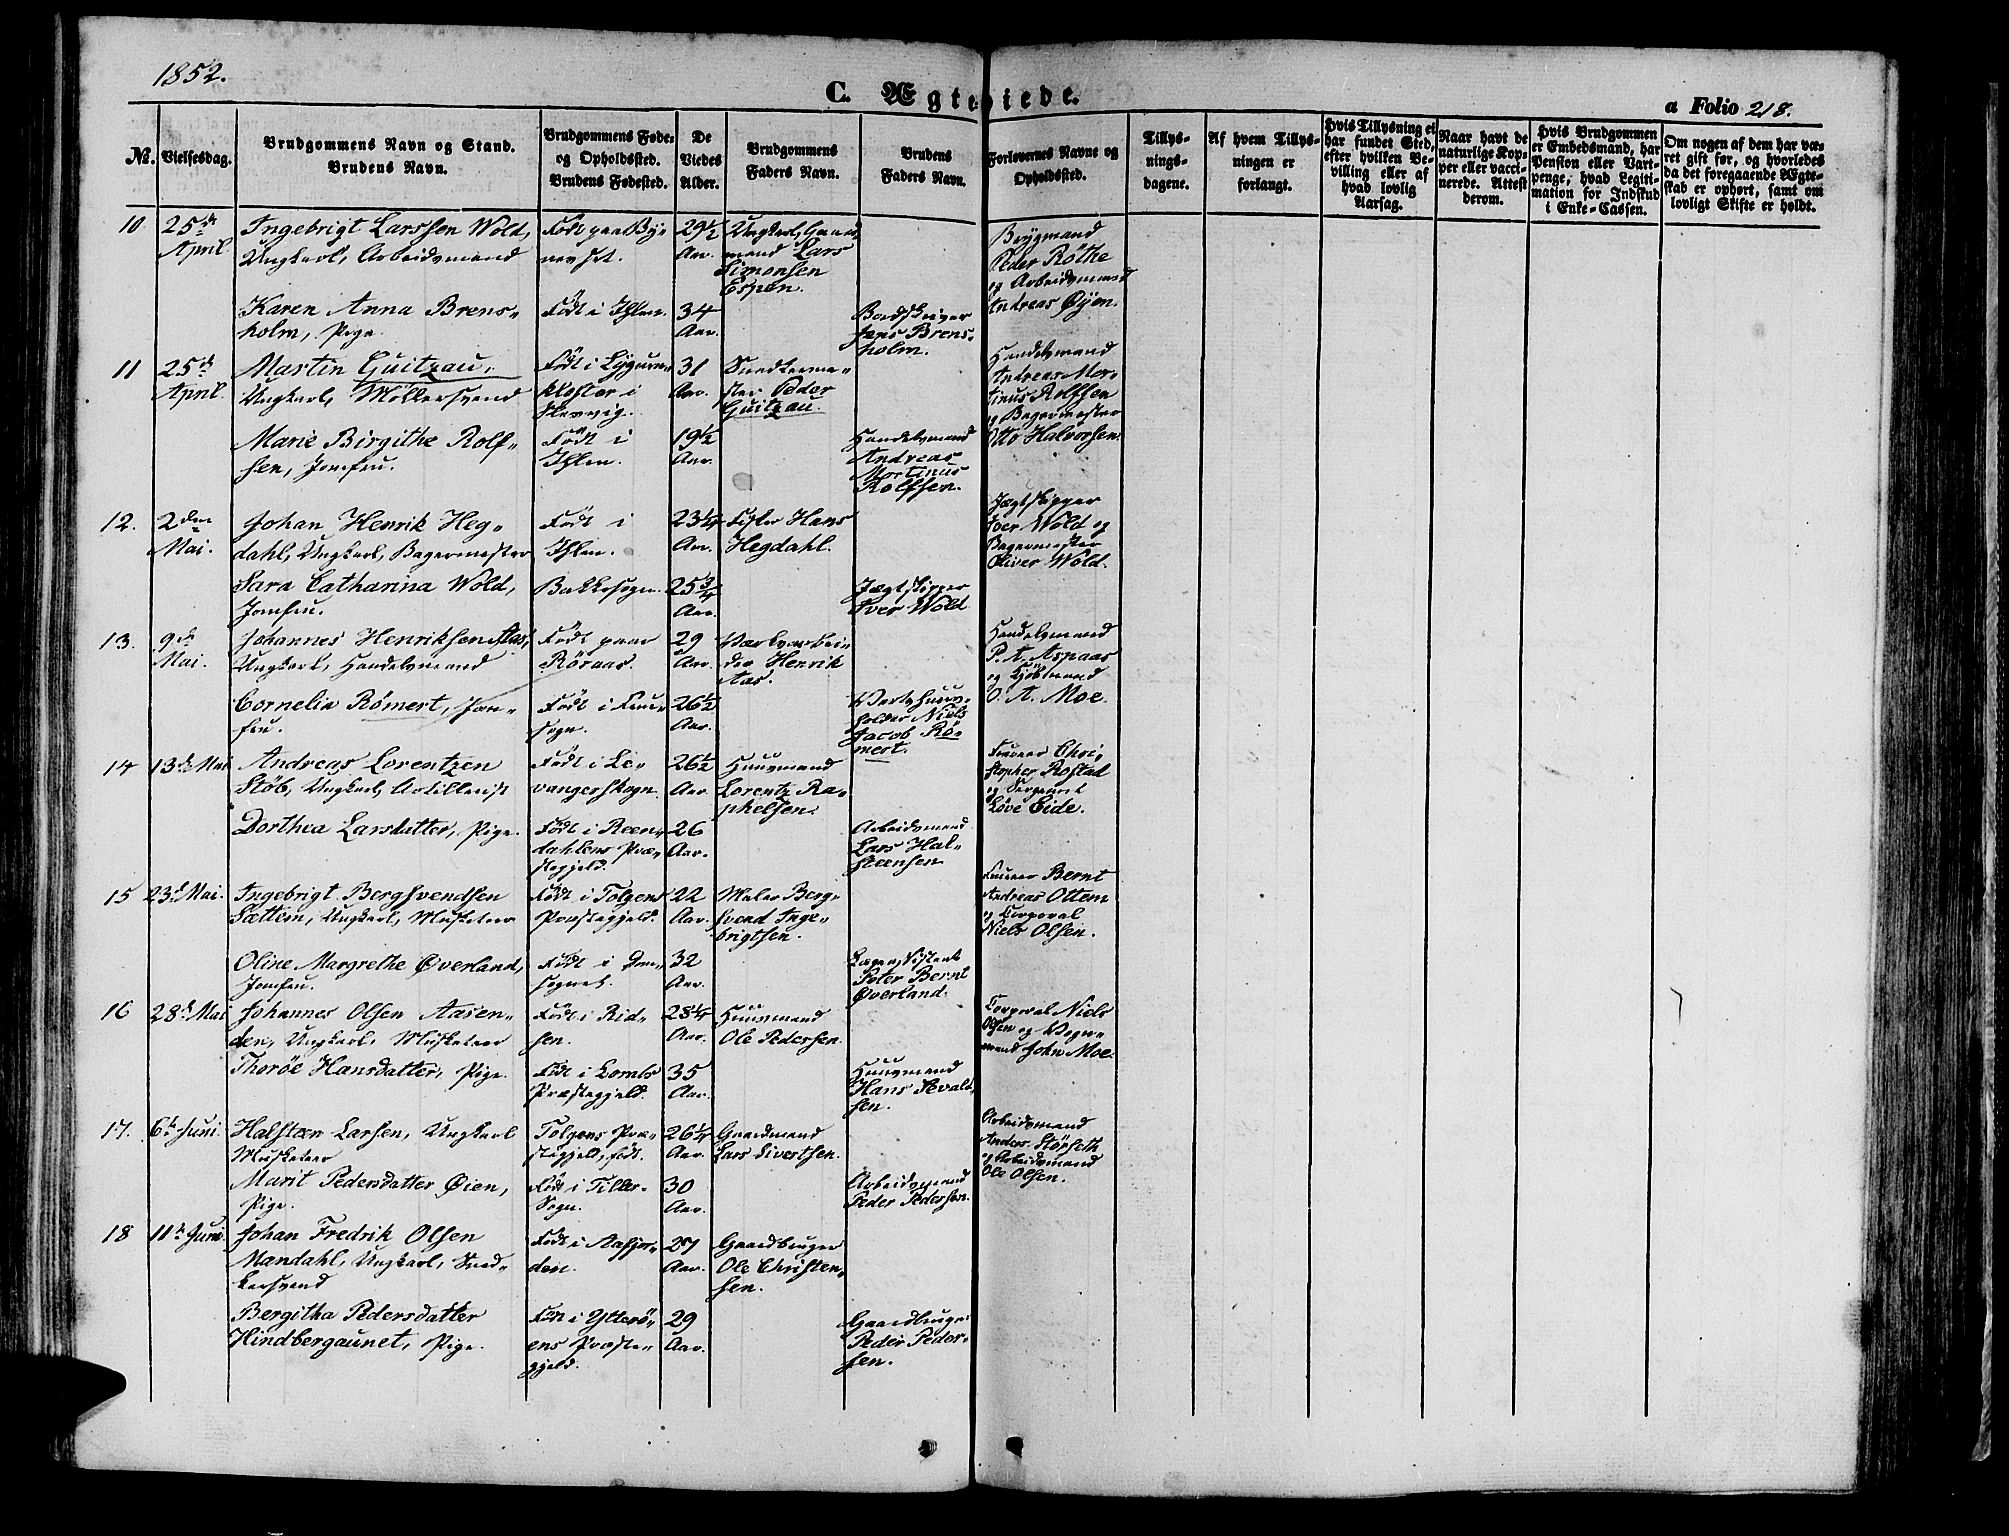 1852.
C. Ægteviede.
a Folio 218.
No.
Vielsesdag.
Brudgommens Navn og Stand.
Brudens Navn.
Brudgommens Føde-
og Opholdssted.
Brudens Fødested.
De
Viedes
Alder.
Brudgommens
Faders Navn.
Brudens
Faders Navn.
Forlovernes Navne og
Opholdssted.
Tillys-
nings-
dagene.
Af hvem Tillys-
ningen er
forlangt.
Hvis Tillysning ei
har fundet Sted,
efter hvilken Be-
villing eller af
hvad lovlig
Aarsag.
Naar havt de
naturlige Kop-
per eller vacci-
nerede. Attest
derom.
Hvis Brudgommen
er Embedsmand, har
Pension eller Vart-
penge, hvad Legiti-
mation for Indskud
i Enke-Cassen.
Om nogen af dem har væ-
ret gift før, og hvorledes
da det foregaaende Ægte-
skab er ophørt, samt om
lovligt Skifte er holdt.
10.
25de
April.
Ingebrigt Larssen Wold,
Ungkarl, Arbeidsmand
Født paa By-
nesset.
29 1/2
Aar.
Ungkarl, Gaard-
mand Lars
Simonsen
Espen.
Brygmand
Peder Röthe
og Arbeidsmand
Andreas Øyen.
Karen Anna Brens-
holm, Pige.
Født i Ihlen.
34
Aar.
Bordskriver
Jens Brens-
holm.
11
25de
April.
Martin Guitzau,
Ungkarl, Möllersvend
Født i Lygum-
kloster i
Slesvig.
31
Aar.
Snedkerme-
ster Peder
Guitzau.
Handelsmand
Andreas Mar-
tinus Rolfsen
og Bagermester
Otto Halvorsen.
Marie Birgithe Rolf-
sen, Jomfru.
Født i
Ihlen.
19 1/2
Aar.
Handelsmand
Andreas
Martinus
Rolfsen.
12.
2den
Mai.
Johan Henrik Heg-
dahl, Ungkarl, Bagermester
Født i
Ihlen.
23 1/4
Aar.
Fisker Hans
Hegdahl.
Jægtskipper
Iver Wold og
Bagermester
Oliver Wold.
Sara Catharina Wold,
Jomfru.
Bakkesogn.
25 3/4
Aar.
Jægtskipper
Iver Wold
13.
9de
Mai.
Johannes Henriksen Aas,
Ungkarl, Handelsmand
Født paa
Röraas.
29
Aar.
Værksarbei-
der Henrik
Aas.
Handelsmand
P. A. Aspaas
og Kjöbmand
O. A. Moe.
Cornelia Römert, Jom-
fru.
Født i Frue-
sogn.
26 1/2
Aar.
Vertshuus-
holder Niels
Jacob Rö-
mert.
14
13de Mai
Andreas Lorentzen
Stöb, Ungkarl, Artillerist
Født i Le-
vangerskogn.
26 1/2
Aar
Huusmand
Lorentz Ra-
phelsen.
Fureer Chri-
stopher Rostad
og Sergeant
Löve Eide.
Dorthea Larsdatter, Pige.
Født i Reen-
dahlens Præ-
stegjeld.
26
Aar.
Arbeidsmand
Lars Hal-
steensen
15
23d Mai.
Ingebrigt Bergsvendsen
Sættem, Ungkarl, Musketeer
Født i Tolgens
Præstegjeld.
22
Aar.
Maler Berg-
svend Inge-
brigtsen.
Fureer Bernt
Andreas Ottem
og Corporal
Niels Olsen.
Oline Margrethe Øverland,
Jomfru.
Født i Dom-
sognet.
32
Aar.
Peter Bernt
Øverland.
16
28de Mai
Johannes Olsen Aasen-
den, Ungkarl, Musketeer
Født i Rid-
sen.
28 1/4
Aar.
Huusmand
Ole Pedersen.
Corporal Niels
Olsen og Vogn-
mand John Moe.
Thoröe Hansdatter, Pige.
Født i Lomls
Præstegjeld.
35
Aar.
Huusmand
Hans Sevald-
sen.
17.
6te Juni.
Halsteen Larsen, Ungkarl
Musketeer
Tolgens Præ-
stegjeld, født.
26 1/4
Aar.
Gaardmand
Lars Sivertsen.
Arbeidsmand
Anders Störseth
og Arbeidsmand
Ole Olsen.
Marit Pedersdatter Øien,
Pige.
Født i Tiller-
Sogn.
30
Aar.
Arbeidsmand
Peder Pedersen.
18
11te Juni.
Johan Fredrik Olsen
Mandahl, Ungkarl, Sned-
kersvend
Født i Aafjor-
den.
27
Aar.
Gaardbruger
Ole Christen-
sen.
Bergitha Pedersdatter
Hindbergaunet, Pige.
Født i Ytterö-
ens Præste-
gjeld.
29
Aar.
Gaardbruger
Peder Peder-
sen.